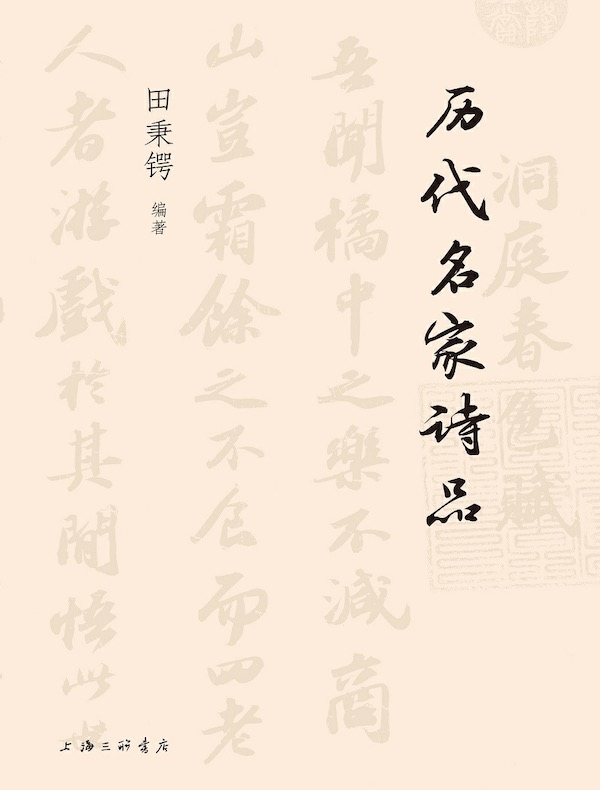 历代名家诗品
田秉锷 编著
上海三联书店
洞庭春色赋
吾闻橘中之樂不減商
山豈霜餘之不食而四老
人者游戲於其間悟此世